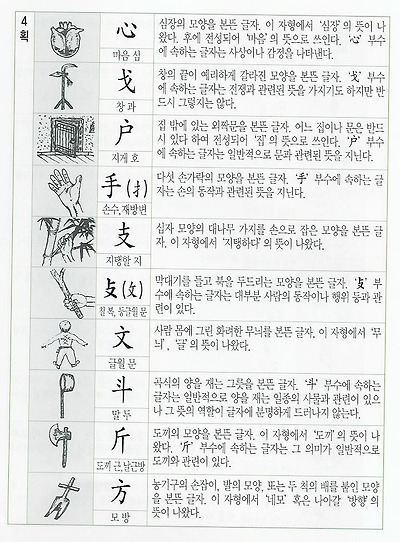 4
획
心
마음 심
심장의 모양을 본뜬 글자. 이 자형에서 '심장'의 뜻이 나
왔다. 후에 전성되어 '마음'의 뜻으로 쓰인다. '心' 부수
에 속하는 글자는 사상이나 감정을 나타낸다.
戈
창 과
창의 끝이 예리하게 갈라진 모양을 본뜬 글자. '戈' 부수
에 속하는 글자는 전쟁과 관련된 뜻을 가지기도 하지만 반
드시 그렇지는 않다.
户
지게 호
집 밖에 있는 외짝문을 본뜬 글자. 어느 집이나 문은 반드
시 있다 하여 전성되어 '집'의 뜻으로 쓰인다. '户' 부수
에 속하는 글자는 일반적으로 문과 관련된 뜻을 지닌다.
手(扌)
손수, 재방변
다섯 손가락의 모양을 본뜬 글자. '手' 부수에 속하는 글
자는 손의 동작과 관련된 뜻을 지닌다.
支
지탱할 지
십자 모양의 대나무 가지를 손으로 잡은 모양을 본뜬 글
자. 이 자형에서 '지탱하다'의 뜻이 나왔다.
攴(攵)
칠 복, 등글월 문
막대기를 들고 북을 두드리는 모양을 본뜬 글자. '攴' 부
수에 속하는 글자는 대부분 사람의 동작이나 행위 등과 관
련이 있다.
文
글월 문
사람 몸에 그린 화려한 무늬를 본뜬 글자. 이 자형에서 '무
늬', '글'의 뜻이 나왔다.
斗
말 두
곡식의 양을 재는 그릇을 본뜬 글자. '斗' 부수에 속하는
글자는 일반적으로 양을 재는 일종의 사물과 관련이 있으
나 그 뜻의 역할이 글자에 분명하게 드러나지 않는다.
斤
도끼 근, 날근방
도끼의 모양을 본뜬 글자. 이 자형에서 '도끼'의 뜻이 나
왔다. '斤' 부수에 속하는 글자는 그 의미가 일반적으로
도끼와 관련이 있다.
方
모 방
농기구의 손잡이, 밭의 모양, 또는 두 척의 배를 붙인 모양
을 본뜬 글자. 이 자형에서 '네모' 혹은 나아갈 '방향'의
뜻이 나왔다.